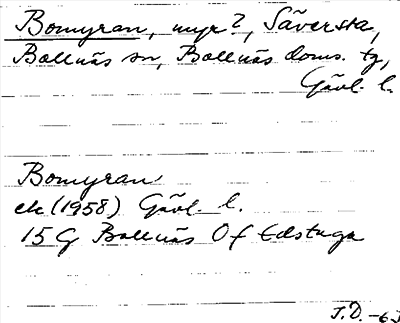 Bomyran, myr?, Säversta,
Bollnäs sn, Bollnäs doms. tg,
Gävl. l.
Bomyran
ek (1958) Gävl. l.
15 G Bollnäs 0 f Edstuga
J.D. -63